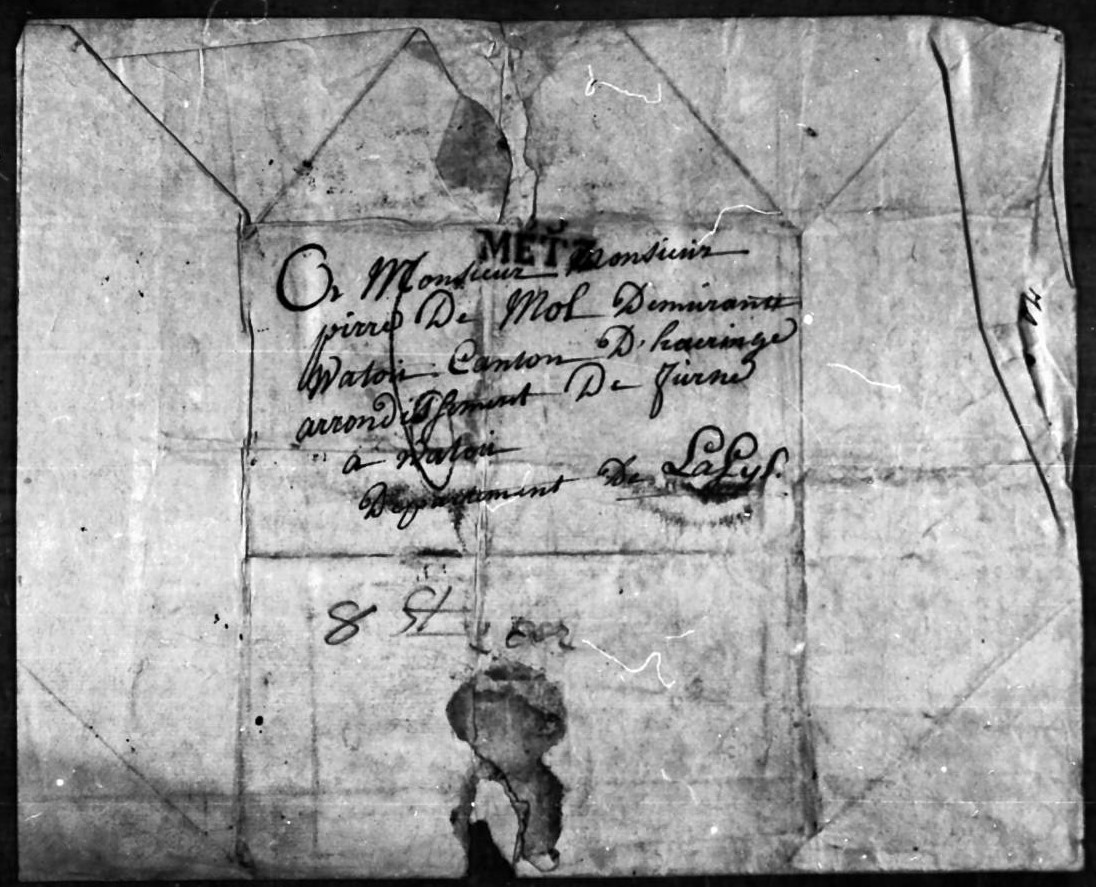 METZ
Or Monsieur Monsieur
pirre De Mol Demurantt
Watoü Canton D'haeringe
arrondissement De furne
a Watoü
Deppartement De LaLys.
8 St